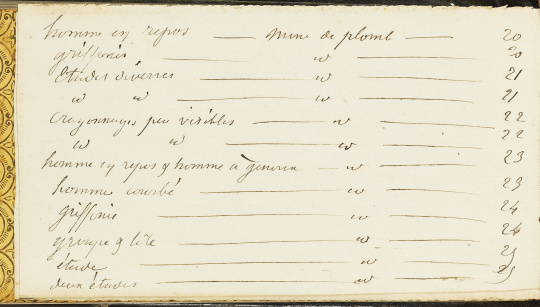 homme en repos — mine de plomb — 20
griffonis — id — 20
études diverses — id — 21
id id — id — 21
crayonnages peu visibles — id — 22
id id — id — 22
homme en repos & homme à genoux — id — 23
homme courbé — id — 23
griffonis — id — 24
groupe & tête — id — 24
étude — id — 25
deux études — id — 25